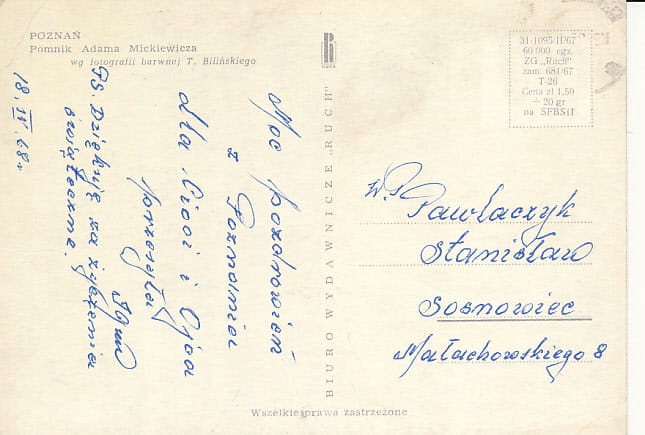 POZNAŃ
Pomnik Adama Mickiewicza
wg fotografii barwnej T. Bilińskiego
RUCH
31-1095/II/67
60 000 egz.
ZG „Ruch"
zam. 681/67
T-26
Cena zł 1,50
+ 20 gr
na SFBSiI
BIURO WYDAWNICZE „RUCH"
Moc pozdrowień
z Poznania
dla Cioci i Ojca
przesyła
PS. Dziękuję za życzenia
świąteczne.
18.IV.68r
W.P.
Pawlaczyk
Stanisław
Sosnowiec
Małachowskiego 8
Wszelkie prawa zastrzeżone